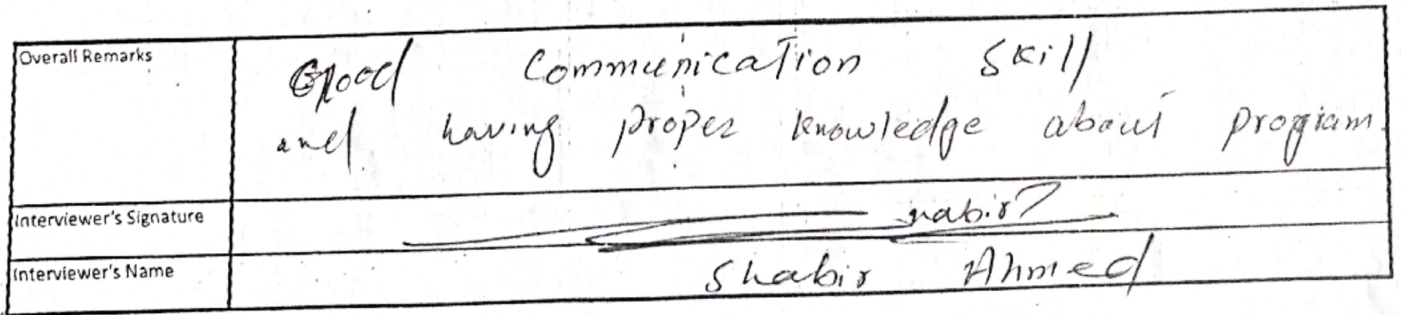 Overall Remarks
Good Communication Skill
and having proper knowledge about program.
Interviewer's Signature
Interviewer's Name
Shabir Ahmed